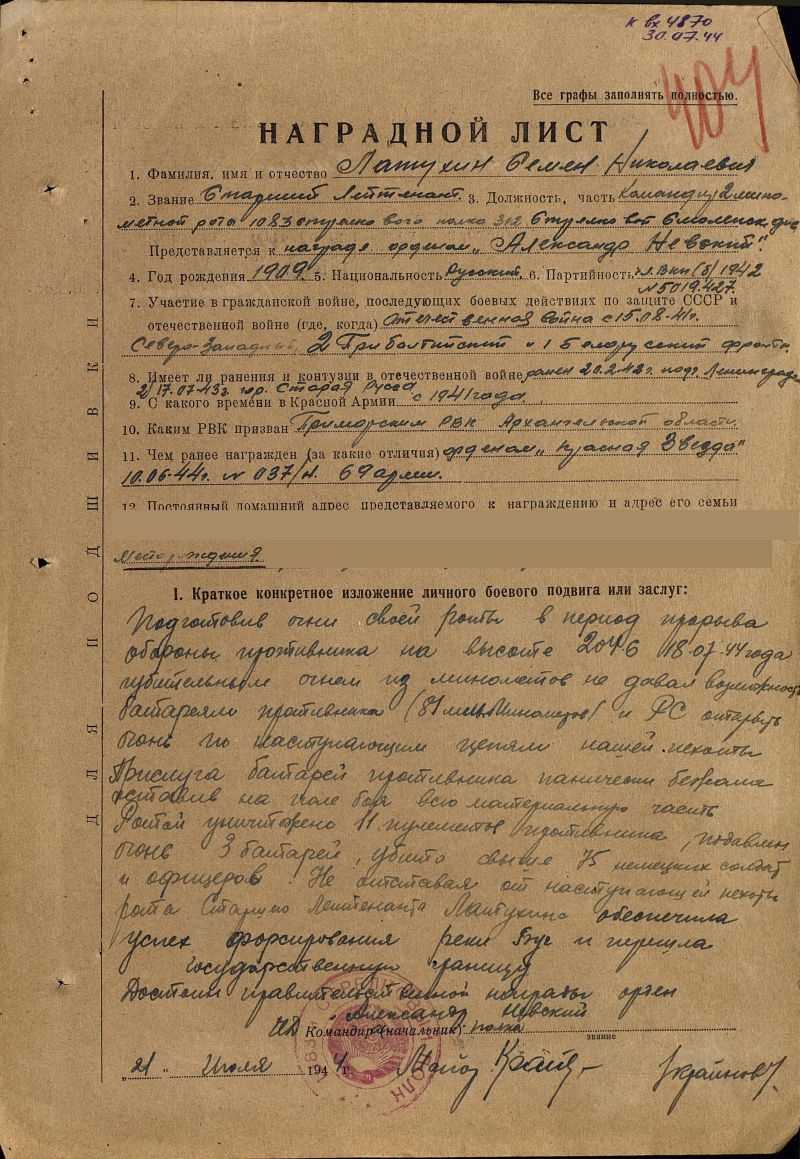 к вх 4870
30.07.44
404
Все графы заполнять полностью.
НАГРАДНОЙ ЛИСТ
1. Фамилия, имя и отчество Латухин Семен Николаевич
2. Звание Старший Лейтенант. 3. Должность, часть Командир 2 мино-
метной рота 1083 стрелкового полка 312 Стрелковой Смоленск. див
Представляется к награде орденом „Александр Невский".
4. Год рождения 1909 5. Национальность Русский 6. Партийность чл. ВКП(б) 1942
N 5019427.
7. Участие в гражданской войне, последующих боевых действиях по защите СССР и
отечественной войне (где, когда) Отечественная война с 15.08.41г.
Северо-Западный, 2 Прибалтийский и 1 Белорусский фронты.
8. Имеет ли ранения и контузии в отечественной войне ранен 20.2.42г. под Ленинград
2/17.07.43г. гр. Старая Русса
9. С какого времени в Красной Армии с 1941 года
10. Каким РВК призван Приморским РВК Архангельской области.
11. Чем ранее награжден (за какие отличия) орденом „Красная Звезда"
10.06.44г. N 037/н. 69 армии.
12. Постоянный домашний адрес представляемого к награждению и адрес его семьи
Место рождения
I. Краткое конкретное изложение личного боевого подвига или заслуг:
Подготовив огни своей роты в период прорыва
обороны противника на высоте 204.6 18.07.44 года
губительным огнем из минометов не давал возможность
батареям противника (81 м/м Минометов) и РС открыть
огонь по наступающим цепям нашей пехоты
Прислуга батарей противника панически бежала
оставив на поле боя всю материальную часть
Ротой уничтожено 11 пулеметов противника, подавлен
огонь 3 батарей, убито свыше 75 немецких солдат
и офицеров. Не отставая от наступающей пехоты
рота Старшего Лейтенанта Латухина обеспечила
успех форсирования реки Буг и перешла
государственную границу
Достоин правительственной награды орден
„Александр Невский
ИД Командира (начальник) полка
звание
„21 " Июля 1944 г. Майор Украинов
ДЛЯ ПОДШИВКИ